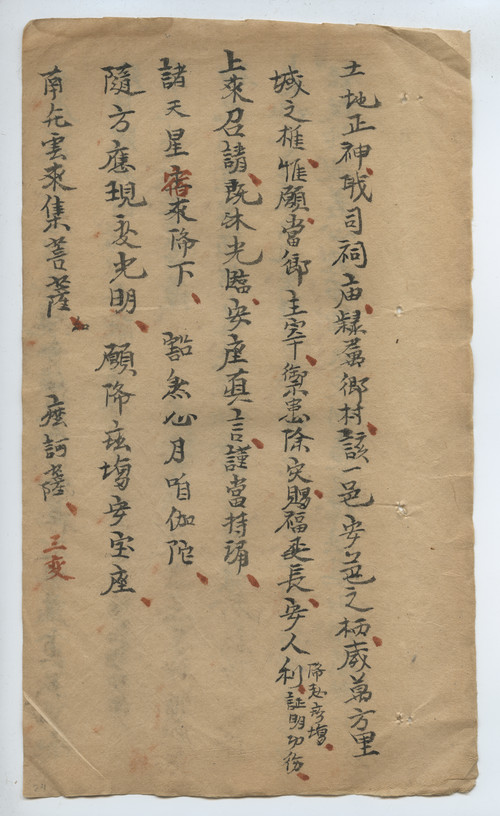 土地正神职司祠庙隸属鄉村該一邑安邑之柄威萬方里
城之权惟願當鄉主宰禦患除灾賜福延長安人利
降赴斉壇
証明功
上來召請既沐光臨安座真言謹當持誦
諸天星宿來降下 豁然心月咱伽陀
隨方應現变光明 願降茲壇安宝座
南无雲來集菩薩 摩訶薩 三变